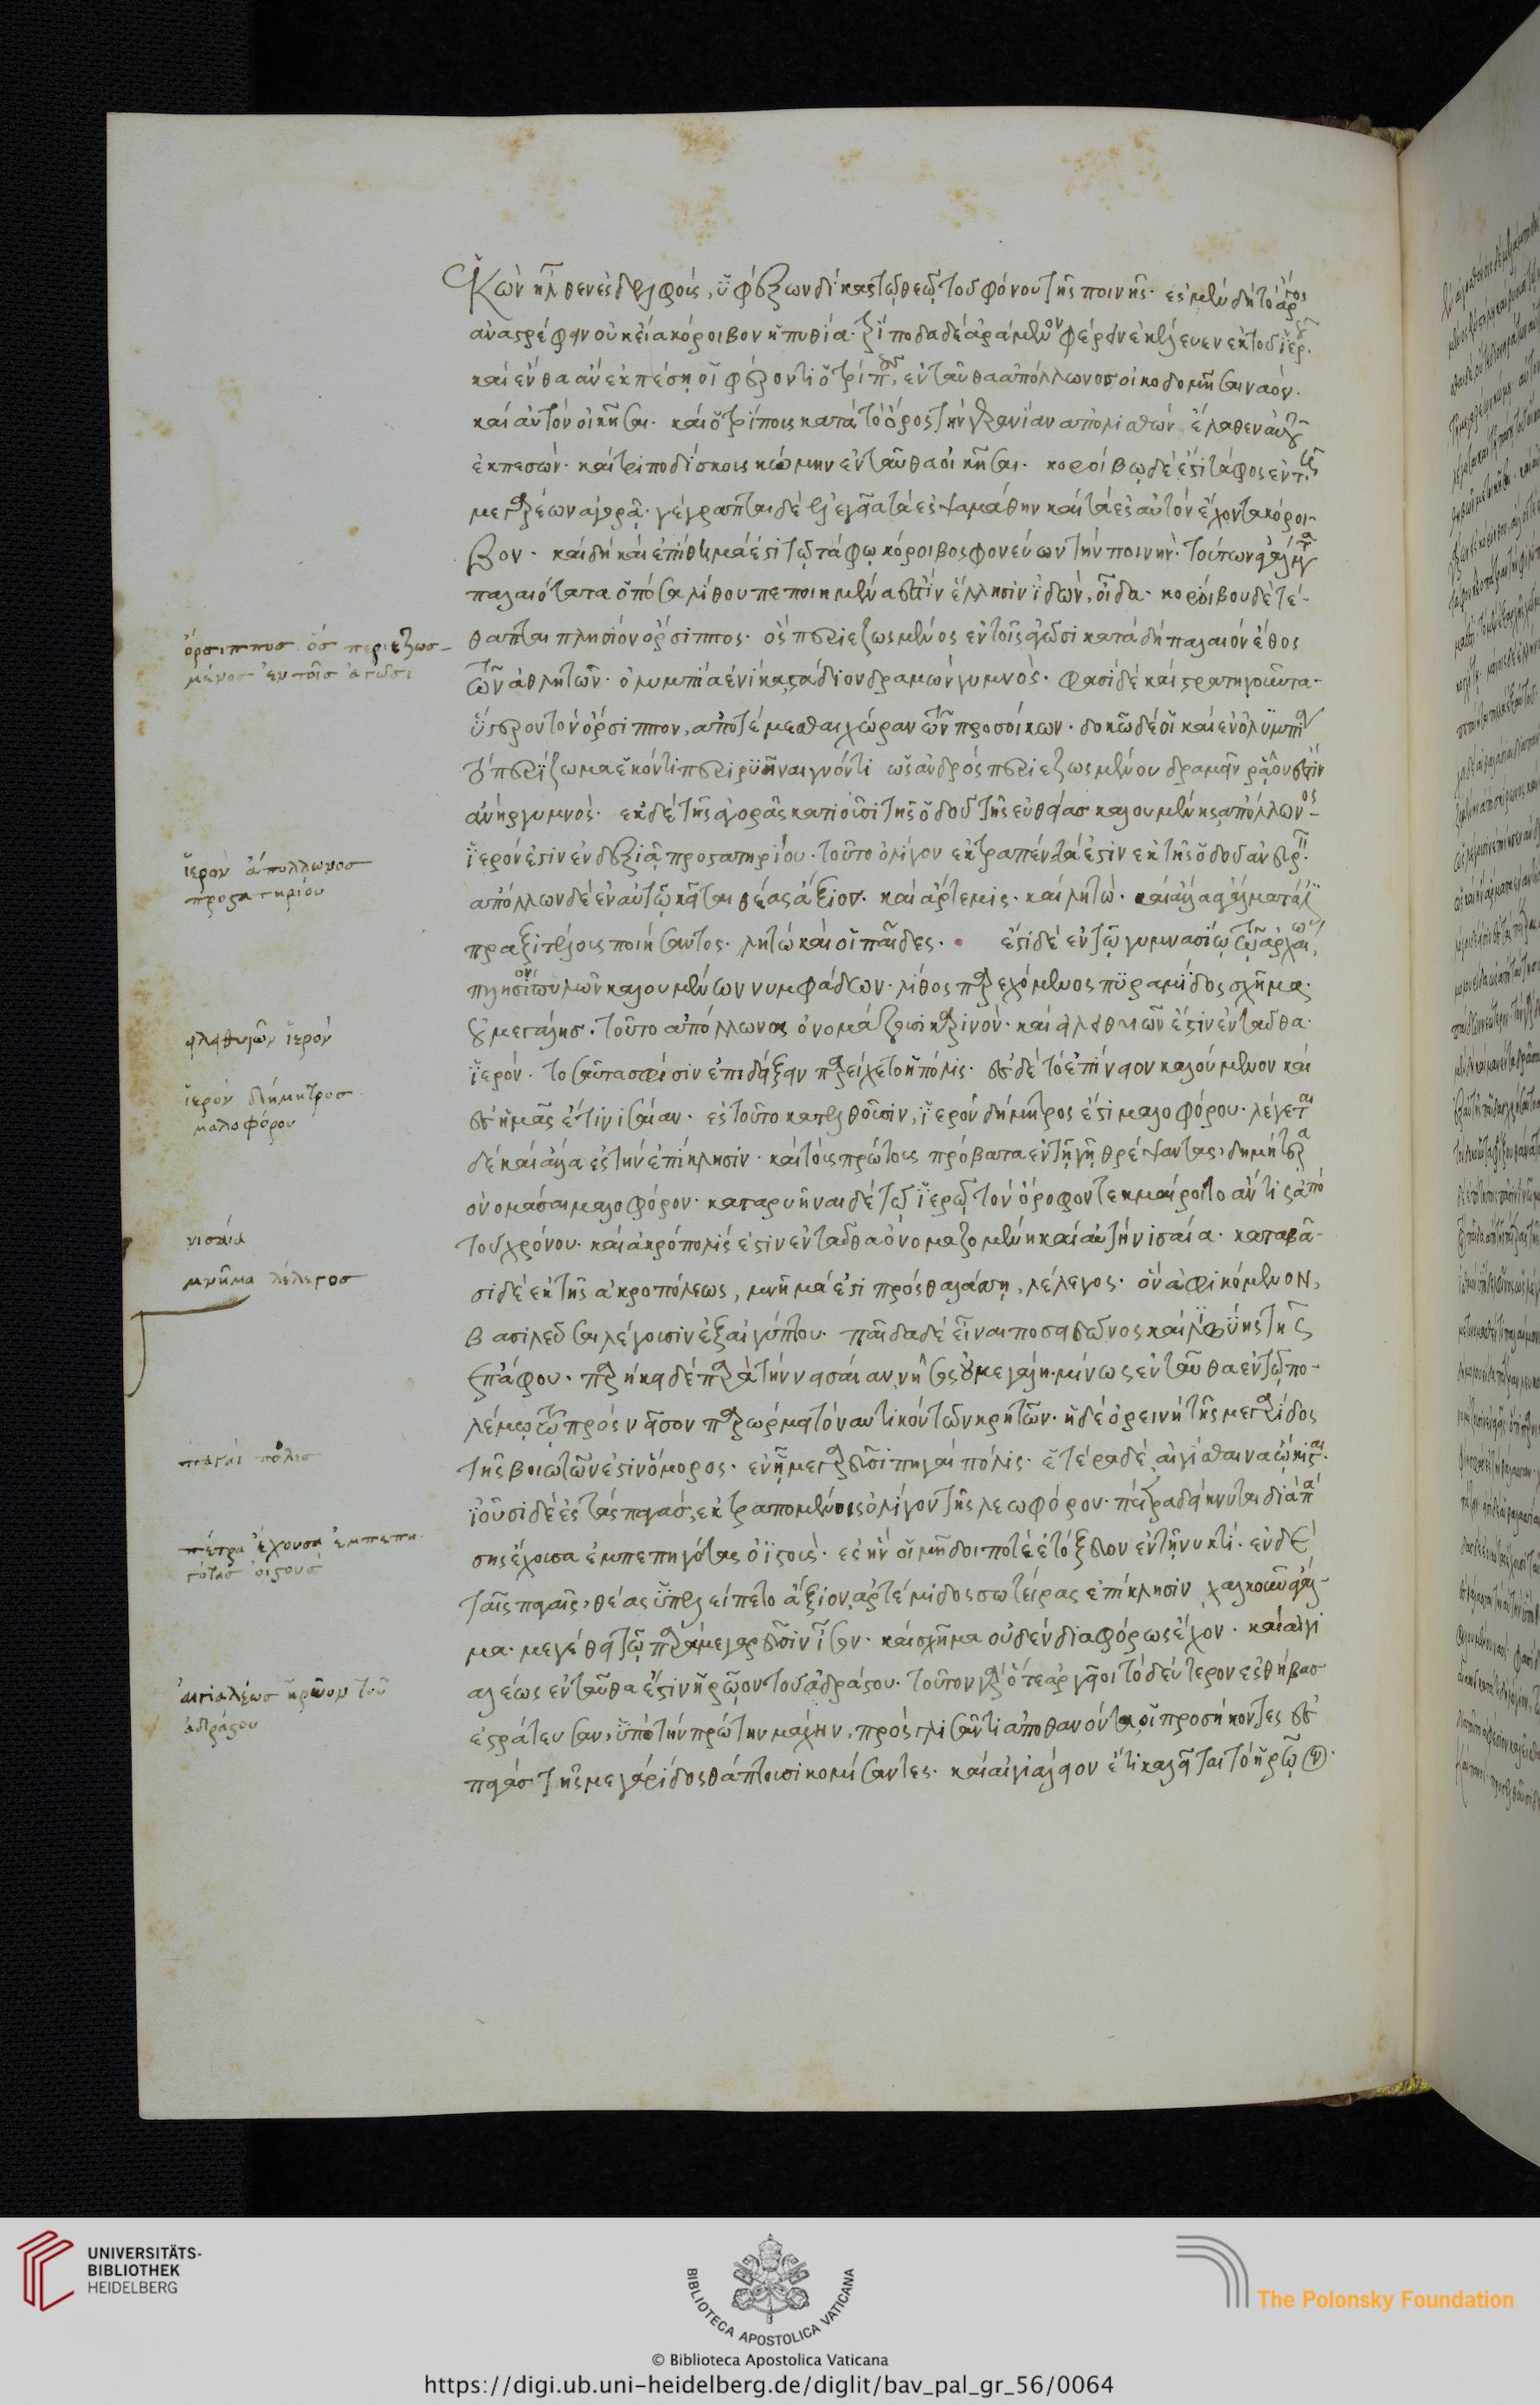 ἑκὼν ἦλθεν ἐς δελφοὺς, ὑφέξων δίκας τῷ θεῷ τοῦ φόνου τῆς ποινῆς· ἐς μὲν δὴ τὸ ἄργος
ἀναστρέφειν οὐκ εἴα κόροιβον ἡ πυθία· τρίποδα δὲ ἀράμενον φέρειν ἐκέλευεν ἐκ τοῦ ἱεροῦ·
καὶ ἔνθα ἂν ἐκπέσῃ οἱ φέροντι ὁ τρίπους, ἐνταῦθα ἀπόλλωνος οἰκοδομῆσαι ναόν·
καὶ αὐτὸν οἰκῆσαι· καὶ ὁ τρίπους κατὰ τὸ ὄρος τὴν γερανίαν ἀπολισθὼν ἔλαθεν αὐτοῦ
ἐκπεσών· καὶ τριποδίσκους κώμην ἐνταῦθα οἰκῆσαι· κοροίβῳ δέ ἐστι τάφος ἐν τῇ
μεγαρέων ἀγορᾷ· γέγραπται δὲ ἐλεγεῖα τὰ ἐς ψαμάθην καὶ τὰ ἐς αὐτὸν ἔχοντα κόροι-
βον· καὶ δὴ καὶ ἐπίθημά ἐστι τῷ τάφῳ κόροιβος φονεύων τὴν ποινήν· τούτων ἀγάλματα
παλαιότατα ὁπόσα λίθου πεποιημένα ἐστὶν ἕλλησιν ἰδὼν, οἶδα· κοροίβου δὲ τέ-
θαπται πλησίον ὄρσιππος· ὃς περιεζωσμένος ἐν τοῖς ἀγῶσι κατὰ δὴ παλαιὸν ἔθος
τῶν ἀθλητῶν· ὀλυμπίᾳ ἐνίκα στάδιον δραμὼν γυμνὸς· φασὶ δὲ καὶ στρατηγοῦντα
ὕστερον τὸν ὄρσιππον, ἀποτέμεσθαι χώραν τῶν προσοίκων· δοκῶ δέ οἱ καὶ ἐν ὀλυμπίᾳ
τὸ περίζωμα ἑκόντι περιρυῆναι γνόντι ὡς ἀνδρὸς περιεζωσμένου δραμεῖν ῥᾴων ἐστὶν
ἀνὴρ γυμνός· ἐκ δὲ τῆς ἀγορᾶς κατιοῦσι τῆς ὁδοῦ τῆς εὐθείας καλουμένης ἀπόλλωνος
ἱερόν ἐστιν ἐν δεξιᾷ προστατηρίου· τοῦτο ὀλίγον ἐκτραπέντα ἐστὶν ἐκ τῆς ὁδοῦ ἀνευρεῖν·
ἀπόλλων δὲ ἐν αὐτῷ κεῖται θέας ἄξιος· καὶ ἄρτεμις· καὶ λητώ· καὶ ἄλλα ἀγάλματά ἐστι
πραξιτέλους ποιήσαντος· λητὼ καὶ οἱ παῖδες· ἔστι δὲ ἐν τῷ γυμνασίῳ τῷ ἀρχαίῳ
πλησίον πυλῶν καλουμένων νυμφάδων· λίθος παρεχόμενος πυραμίδος σχῆμα·
οὐ μεγάλης· τοῦτο ἀπόλλωνα ὀνομάζουσι καρινόν· καὶ εἰλειθυιῶν ἐστιν ἐνταῦθα
ἱερόν· τοσαῦτα σφίσιν ἐπιδεῖξειν παρείχετο ἡ πόλις· ἐς δὲ τὸ ἐπίνειον καλούμενον καὶ
ἐς ἡμᾶς ἔτι νισαίαν· ἐς τοῦτο κατελθοῦσιν, ἱερὸν δήμητρος ἐστι μαλοφόρου· λέγεται
δὲ καὶ ἄλλα ἐς τὴν ἐπίκλησιν· καὶ τοὺς πρώτους πρόβατα ἐν τῇ γῇ θρέψαντας, δήμητρα
ὀνομάσαι μαλοφόρον· καταρυῆναι δὲ τῷ ἱερῷ τὸν ὄροφον τεκμαίροιτο ἄν τις ἀπὸ
τοῦ χρόνου· καὶ ἀκρόπολίς ἐστιν ἐνταῦθα ὀνομαζομένη καὶ αὐτὴ νισαία· καταβᾶ-
σι δὲ ἐκ τῆς ἀκροπόλεως, μνῆμά ἐστι πρὸς θαλάσσῃ, λέλεγος· ὃν ἀφικόμενον,
βασιλεῦσαι λέγουσιν ἐξ αἰγύπτου· παῖδα δὲ εἶναι ποσειδῶνος καὶ λιβύης τῆς
ἐπάφου· παρήκει δὲ παρὰ τὴν νισαίαν νῆσος οὐ μεγάλη· μίνως ἐνταῦθα ἐν τῷ πο-
λέμῳ τῷ πρὸς νῖσον παρώρμει τὸ ναυτικὸν τῶν κρητῶν· ἡ δὲ ὀρεινὴ τῆς μεγαρίδος
τῆς βοιωτῶν ἐστιν ὅμορος· ἐν ᾗ μεγαρεῦσι πηγαὶ πόλις· ἑτέρα δὲ αἰγίσθαινα ᾤκισται·
ἰοῦσι δὲ ἐς τὰς πηγάς, ἐκτραπομένοις ὀλίγον τῆς λεωφόρου· πέτρα δείκνυται διὰ πά
σης ἔχουσα ἐμπεπηγότας ὀϊστούς· ἐς ἣν οἱ μῆδοι ποτὲ ἐτόξευον ἐν τῇ νυκτί· ἐν δὲ
ταῖς πηγαῖς, θέας ὑπελείπετο ἄξιον, ἀρτέμιδος σωτείρας ἐπίκλησιν χαλκοῦν ἄγαλ-
μα· μεγέθει τῷ παρὰ μεγαρεῦσιν ἴσον· καὶ σχῆμα οὐδὲν διαφόρως ἔχον· καὶ αἰγι
αλέως ἐνταῦθά ἐστιν ἡρῷον τοῦ ἀδράστου· τοῦτον γὰρ ὅτε ἀργεῖοι τὸ δεύτερον ἐς θήβας
ἐστράτευσαν, ὑπὸ τὴν πρώτην μάχην, πρὸς γλισᾶντι ἀποθανόντα οἱ προσήκοντες ἐς
πηγὰς τῆς μεγαρίδος θάπτουσι κομίσαντες· καὶ αἰγιάλειον ἔτι καλεῖται τὸ ἡρῷον·
ὄρσιππος ὅς περιεζωσ-
μένος ἐν τοῖς ἀγῶσι
ἱερὸν ἀπόλλωνος
προστατηρίου
εἰλειθυιῶν ἱερόν
ἱερὸν δήμητρος
μαλοφόρου
νισαία
μνῆμα λέλεγος
παγαὶ πόλις
πέτρα ἔχουσα ἐμπεπη
γότας οἰστούς
αἰγιαλέως ἡρῶον τοῦ
ἀδράστου
UNIVERSITÄTS-
BIBLIOTHEK
HEIDELBERG
BIBLIOTECA APOSTOLICA VATICANA
The Polonsky Foundation
© Biblioteca Apostolica Vaticana
https://digi.ub.uni-heidelberg.de/diglit/bav_pal_gr_56/0064